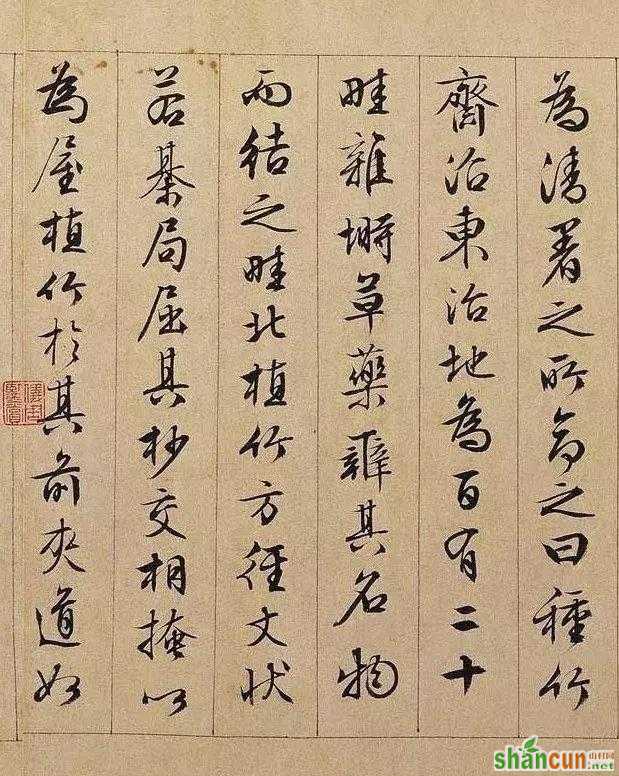 為清暑之所命之曰種竹
齋沼東治地為百有二十
畦雜蒔草藥辨其名物
而揭之畦北植竹方徑丈狀
若棊局屈其杪交相掩以
為屋植竹於其前夾道如
shancun
山村网
.net